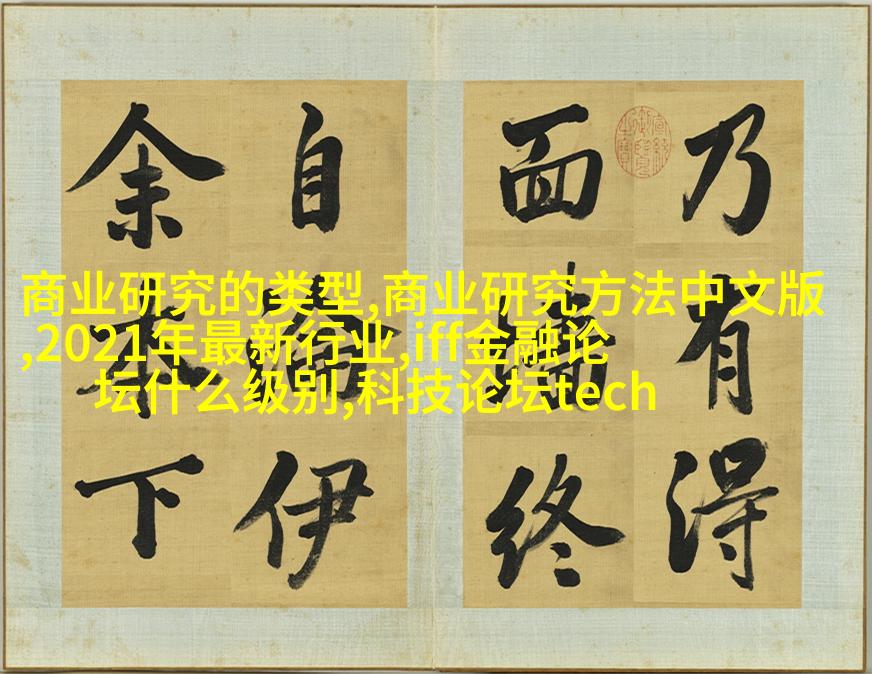 商业研究的类型,商业研究方法中文版
,2021年最新行业,iff金融论
坛什么级别,科技论坛tech
乃有得
面終
自伊
余本下